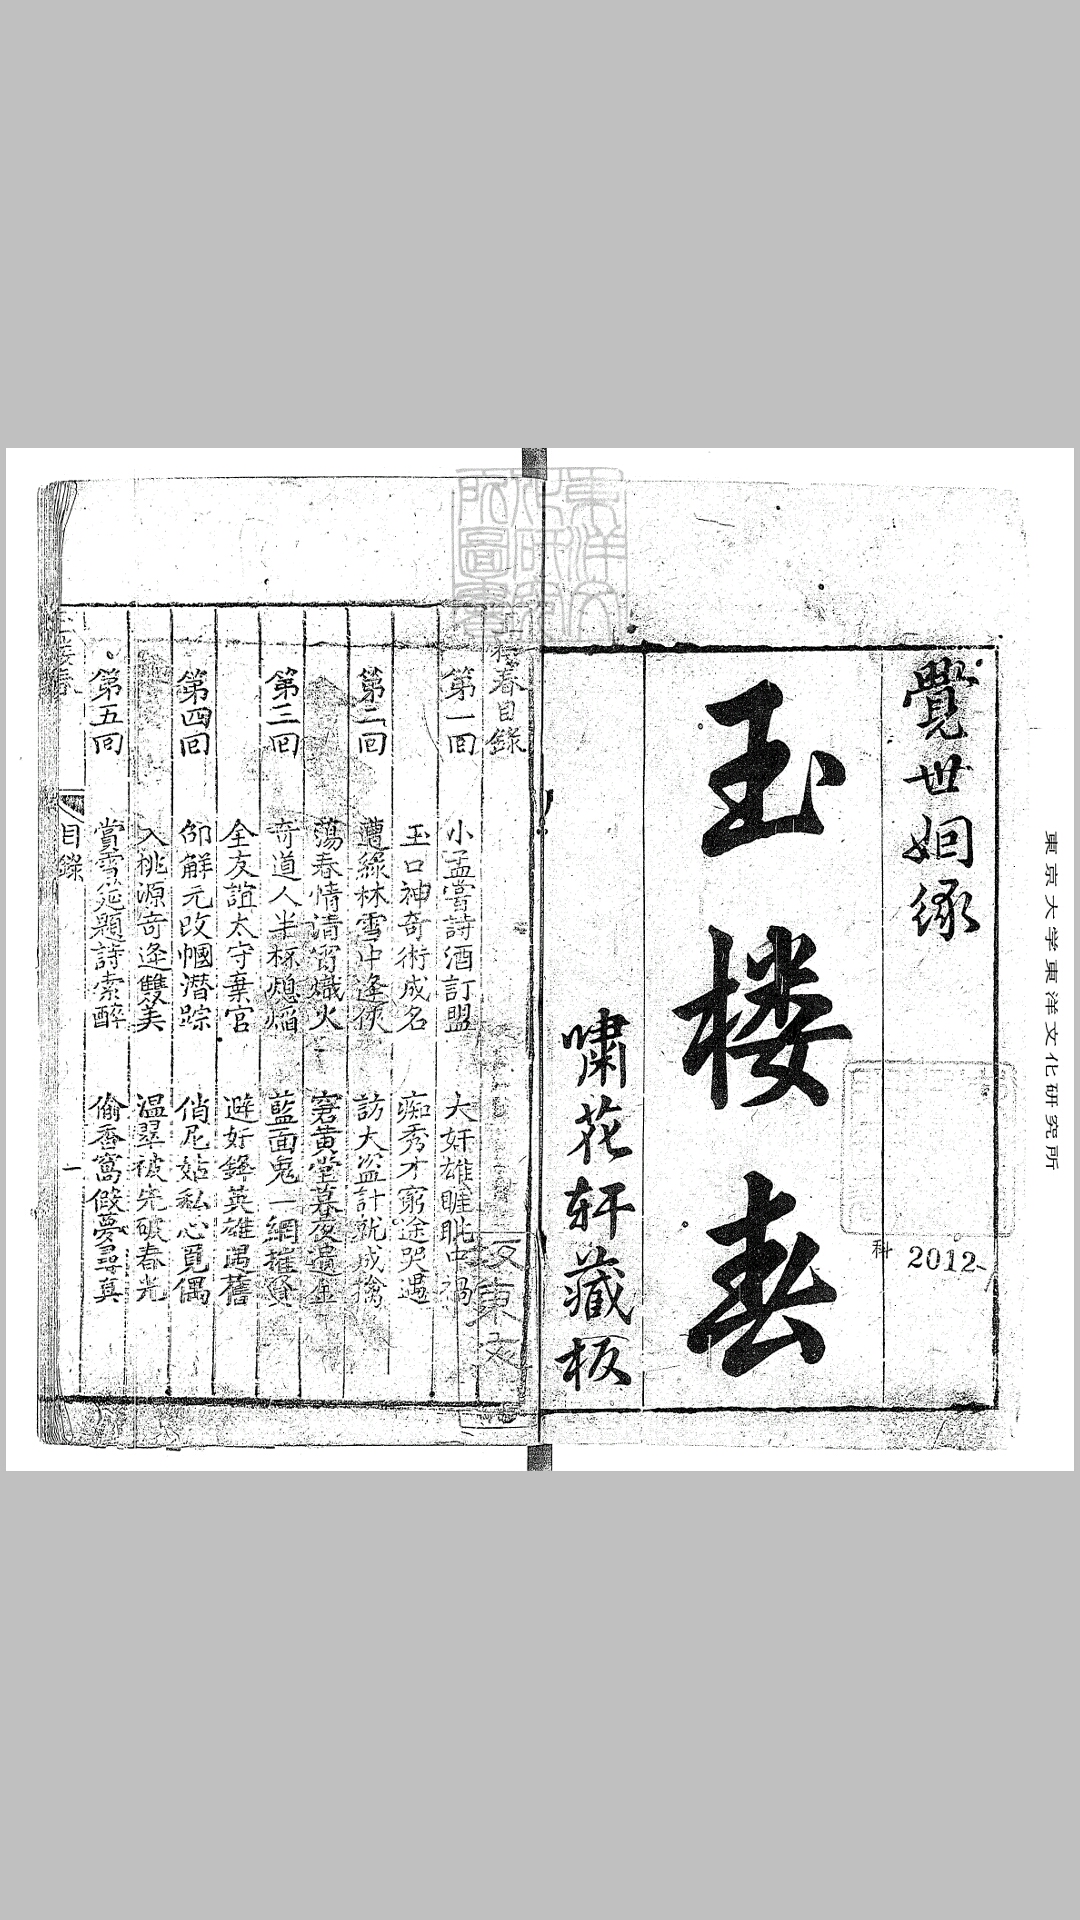 覺世姻緣
玉楼春
嘯花軒藏板
東京大学東洋文化研究所
科 2012
春目錄
第一回 小孟嘗詩酒訂盟 大奸雄睚眦中禍
玉口神奇術成名 痴秀才窮途哭遇
第二回 遭綠林雪中逢俠 訪大盜計就成擒
蕩春情清宵熾火 窘黃堂暮夜遺金
第三回 奇道人半杯熄熖 藍面鬼一網摧賢
全友誼太守棄官 避奸鋒英雄遇舊
第四回 邵解元改幗潛踪 俏尼姑私心覓偶
入桃源奇逢雙美 溫翠被先破春光
第五回 賞雪筵題詩索醉 偷香窩假夢尋真
目錄 一